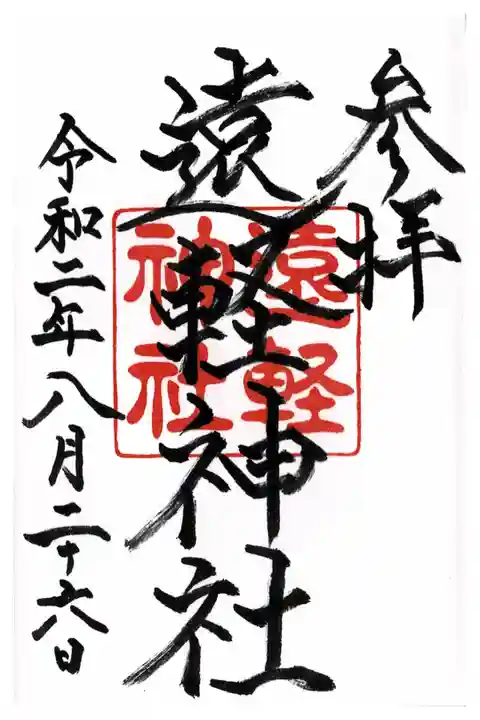 参拝
遠軽神社
遠軽
神社
令和二年八月二十六日